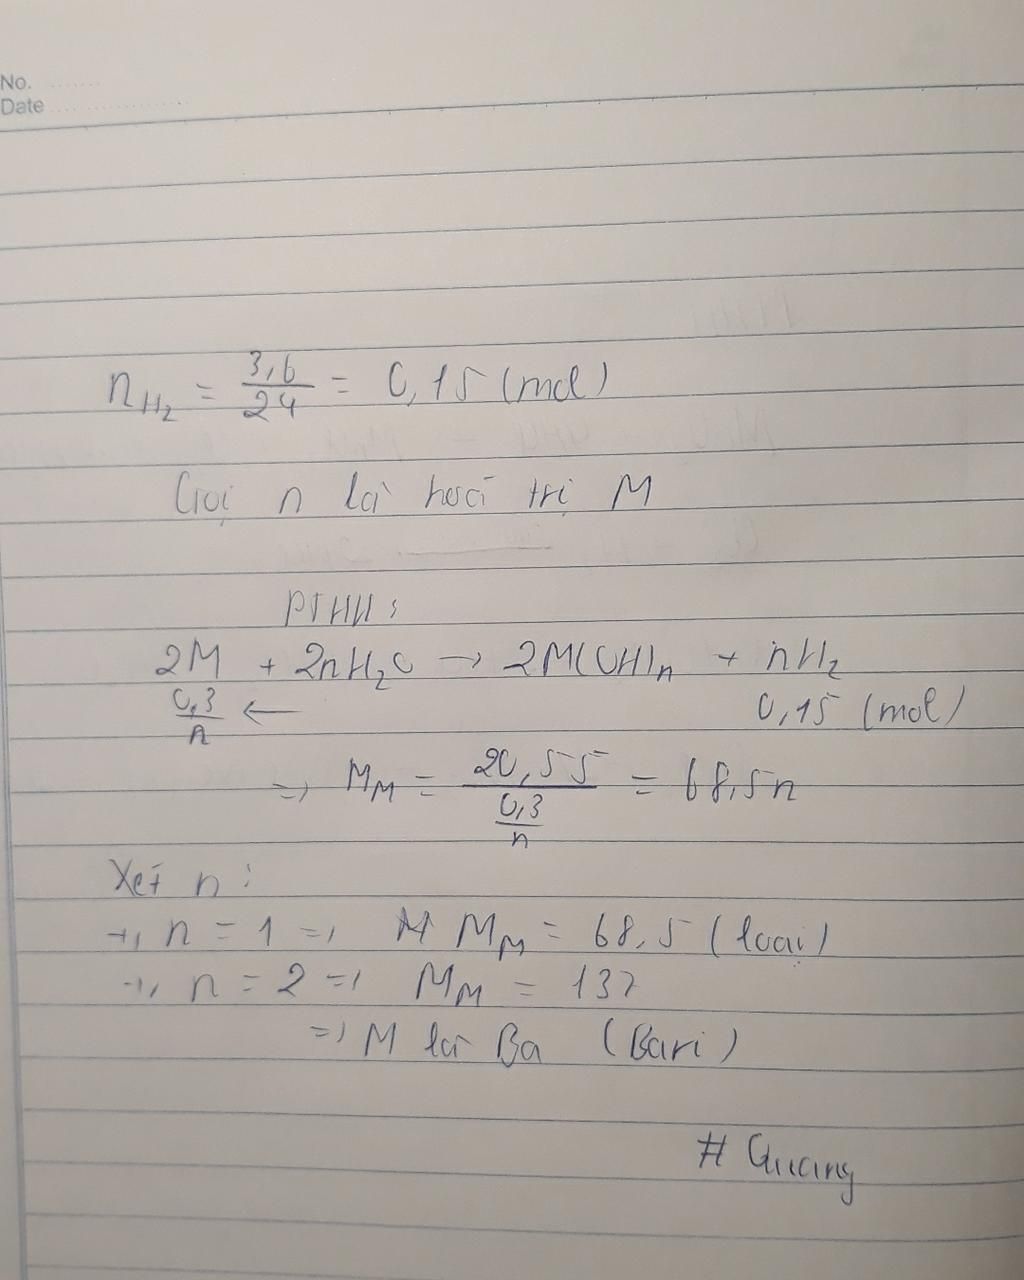 No.
Date
n_{H_2} = \frac{3,6}{24} = 0,15 (mol)
Gọi n là hoá trị M
PTHH:
2M + 2nH_2O → 2M(OH)_n + nH_2
\frac{0,3}{n} ← 0,15 (mol)
=> M_M = \frac{20,55}{\frac{0,3}{n}} = 68,5n
Xét n:
+, n = 1 => M_M = 68,5 (loại)
+, n = 2 => M_M = 137
=> M là Ba (Bari)
# Quang